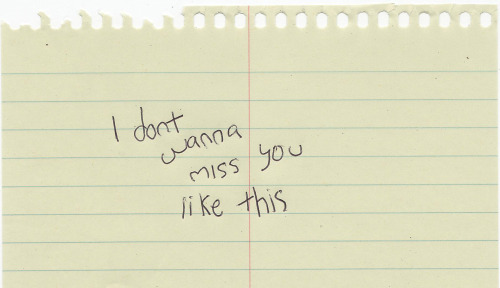 I dont
wanna
miss you
like this